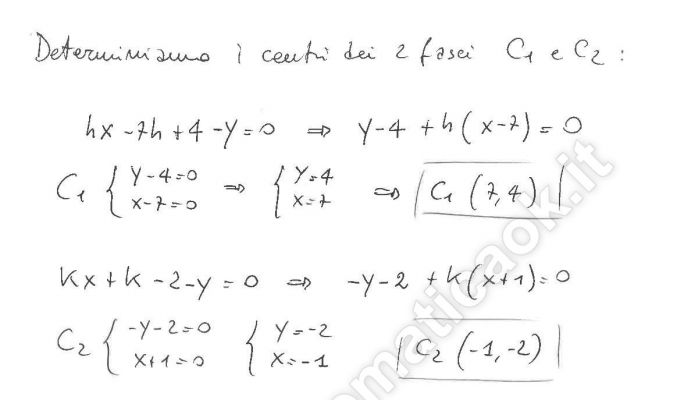 Determiniamo i centri dei 2 fasci C1 e C2 :
hx - 7h + 4 - y = 0 ⇒ y - 4 + h(x - 7) = 0
C1 { y - 4 = 0 ⇒ { y = 4 ⇒ C1 (7,4)
x - 7 = 0 x = 7
kx + k - 2 - y = 0 ⇒ -y - 2 + k(x + 1) = 0
C2 { -y - 2 = 0 { y = -2 C2 (-1,-2)
x + 1 = 0 x = -1
ematicaok.it